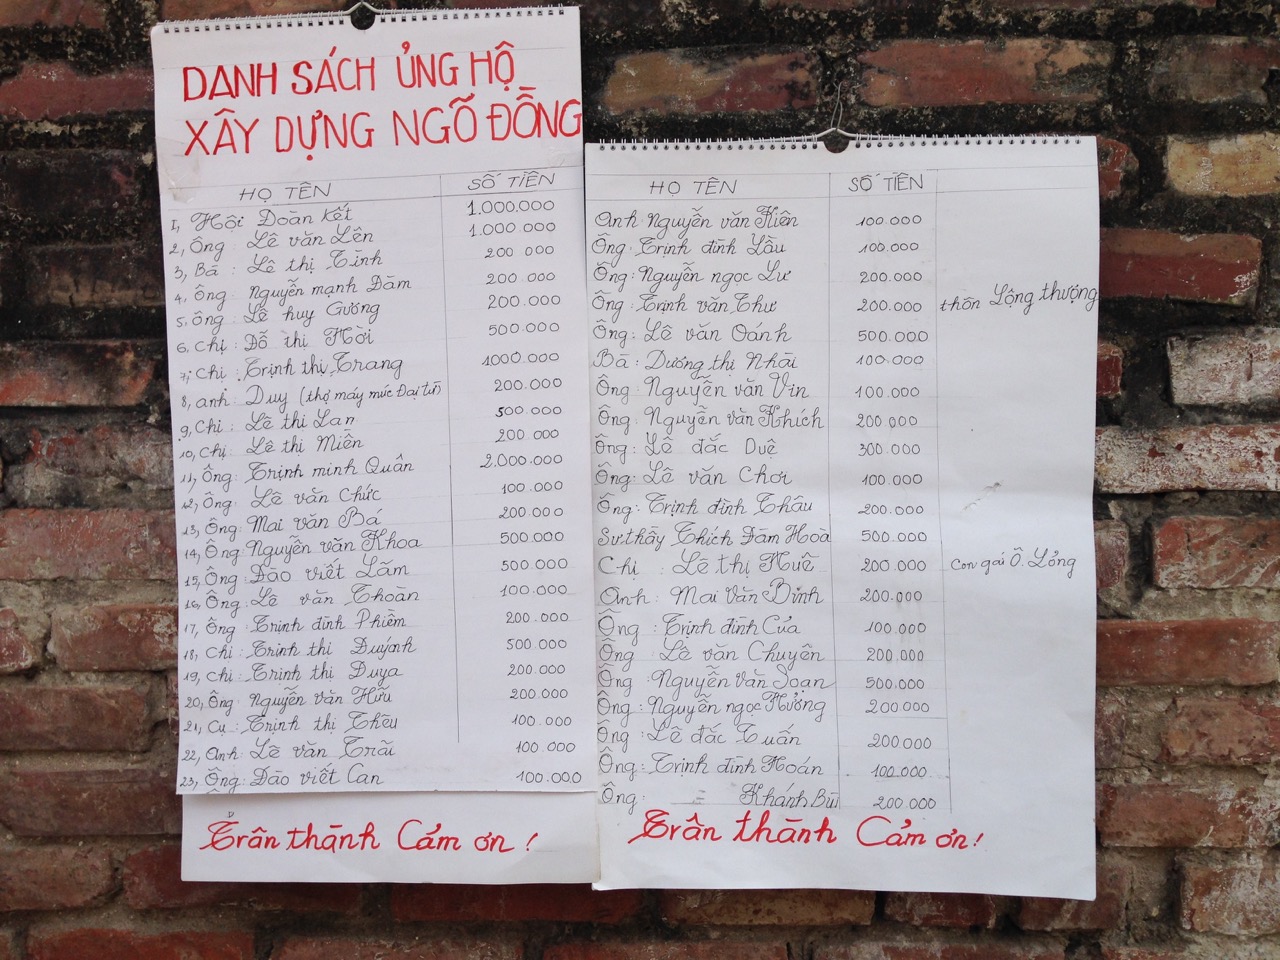 DANH SÁCH ỦNG HỘ
XÂY DỰNG NGÕ ĐỒNG
HỌ TÊN SỐ TIỀN
1, Hội Đoàn Kết 1.000.000
2, Ông Lê văn Lên 1.000.000
3, Bà : Lê thị Tình 200 000
4. Ông Nguyễn mạnh Đàm 200 000
5, Ông : Lê huy Gương 200.000
6, Chị : Đỗ thị Hời 500.000
7, Chị : Trịnh thị Trang 1000.000
8, anh : Duy (thợ máy múc Đại tín) 200.000
9, Chị : Lê thị Lan 500.000
10, Chị Lê thị Miền 200.000
11, Ông: Trịnh minh Quân 2.000.000
12, Ông: Lê văn Chức 100.000
13, Ông: Mai văn Bá 200.000
14, Ông Nguyễn văn Khoa 500.000
15, Ông: Đào viết Lãm 500.000
16, Ông: Lê văn Thoan 100.000
17, Ông: Trịnh đình Phiềm 200.000
18, Chị : Trịnh thị Duýnh 500.000
19, Chị : Trịnh thị Duya 200.000
20, Ông: Nguyễn văn Hữu 200.000
21, Cụ : Trịnh thị Thêu 100.000
22, Anh: Lê văn Trãi 100.000
23, Ông: Đào viết Can 100.000
Trân thành Cảm ơn !
HỌ TÊN SỐ TIỀN
Anh Nguyễn văn Kiên 100.000
Ông: Trịnh đình Lầu 100.000
Ông: Nguyễn ngọc Lư 200.000
Ông: Trịnh văn Thư 200.000 thôn Lộng thượng
Ông: Lê văn Oánh 500.000
Bà: Dương thị Nhài 100.000
Ông: Nguyễn văn Vin 100.000
Ông: Nguyễn văn Khích 200.000
Ông: Lê đắc Duệ 300.000
Ông: Lê văn Chơi 100.000
Ông: Trịnh đình Thâu 200.000
Sư thầy Thích Đàm Hoà 500.000
Chị : Lê thị Huê 200.000 Con gái Ô. Lỏng
Anh: Mai Văn Bình 200.000
Ông : Trịnh đình Của 100.000
Ông : Lê văn Chuyên 200.000
Ông : Nguyễn văn Soạn 500.000
Ông: Nguyễn ngọc Hưởng 200.000
Ông: Lê đắc Tuấn 200.000
Ông: Trịnh đình Hoán 100.000
Ông: = Khánh Bùi 200.000
Trân thành Cảm ơn!